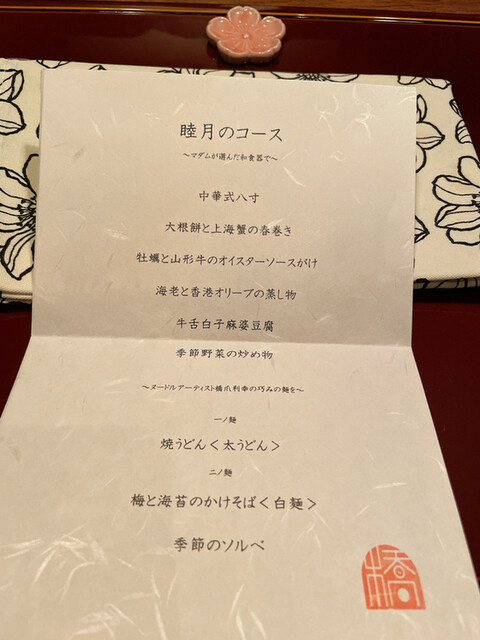 睦月のコース
〜マダムが選んだ和食器で〜
中華式八寸
大根餅と上海蟹の春巻き
牡蠣と山形牛のオイスターソースがけ
海老と香港オリーブの蒸し物
牛舌白子麻婆豆腐
季節野菜の炒め物
〜ヌードルアーティスト橋爪利幸の巧みの麺を〜
一ノ麺
焼うどん＜太うどん＞
二ノ麺
梅と海苔のかけそば＜白麺＞
季節のソルベ
橋